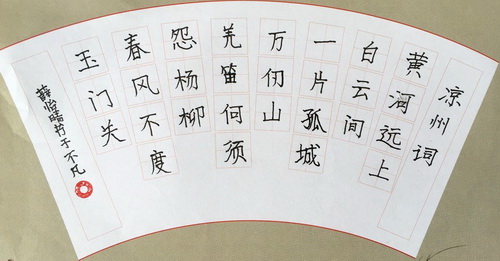 凉州词
黄河远上
白云间
一片孤城
万仞山
羌笛何须
怨杨柳
春风不度
玉门关
薛怡晗书于不凡